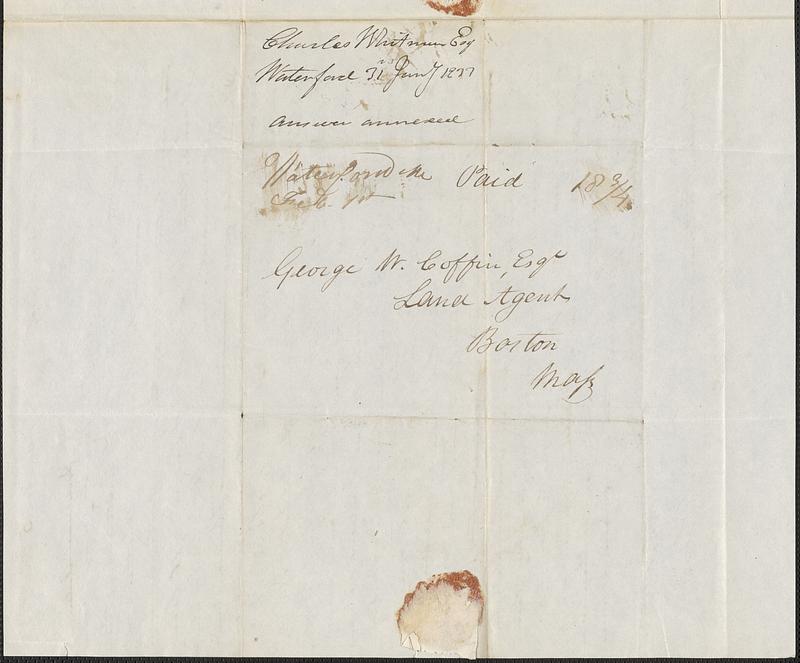 Charles Whitman Esq
Waterford 31 Jany 1837
Answer annexed
Waterford Me Paid 18 3/4
Feb. 1st
George W. Coffin, Esqr
Land Agent
Boston
Mass